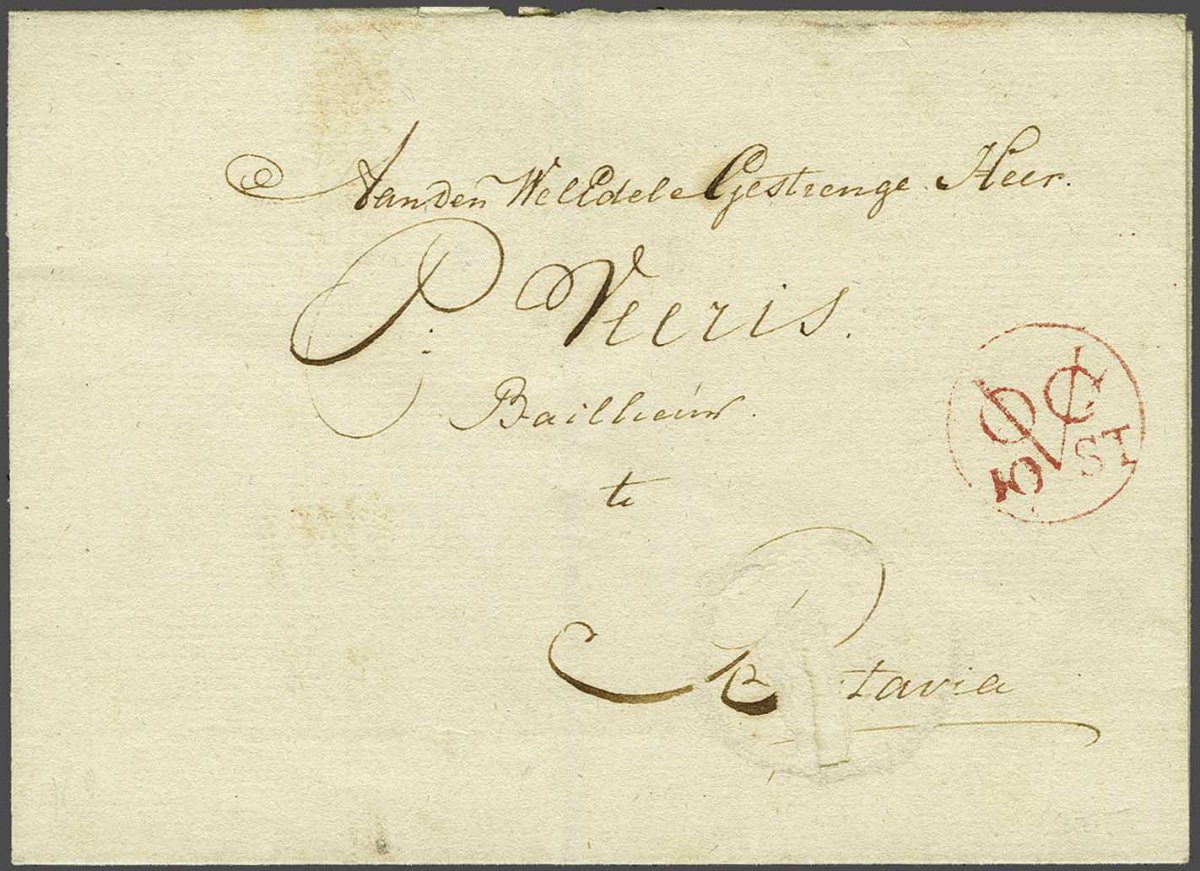 Aan den WelEdele Gestrenge Heer.
P. Veeris.
Bailliuw.
te
Batavia
OVC
5 ST